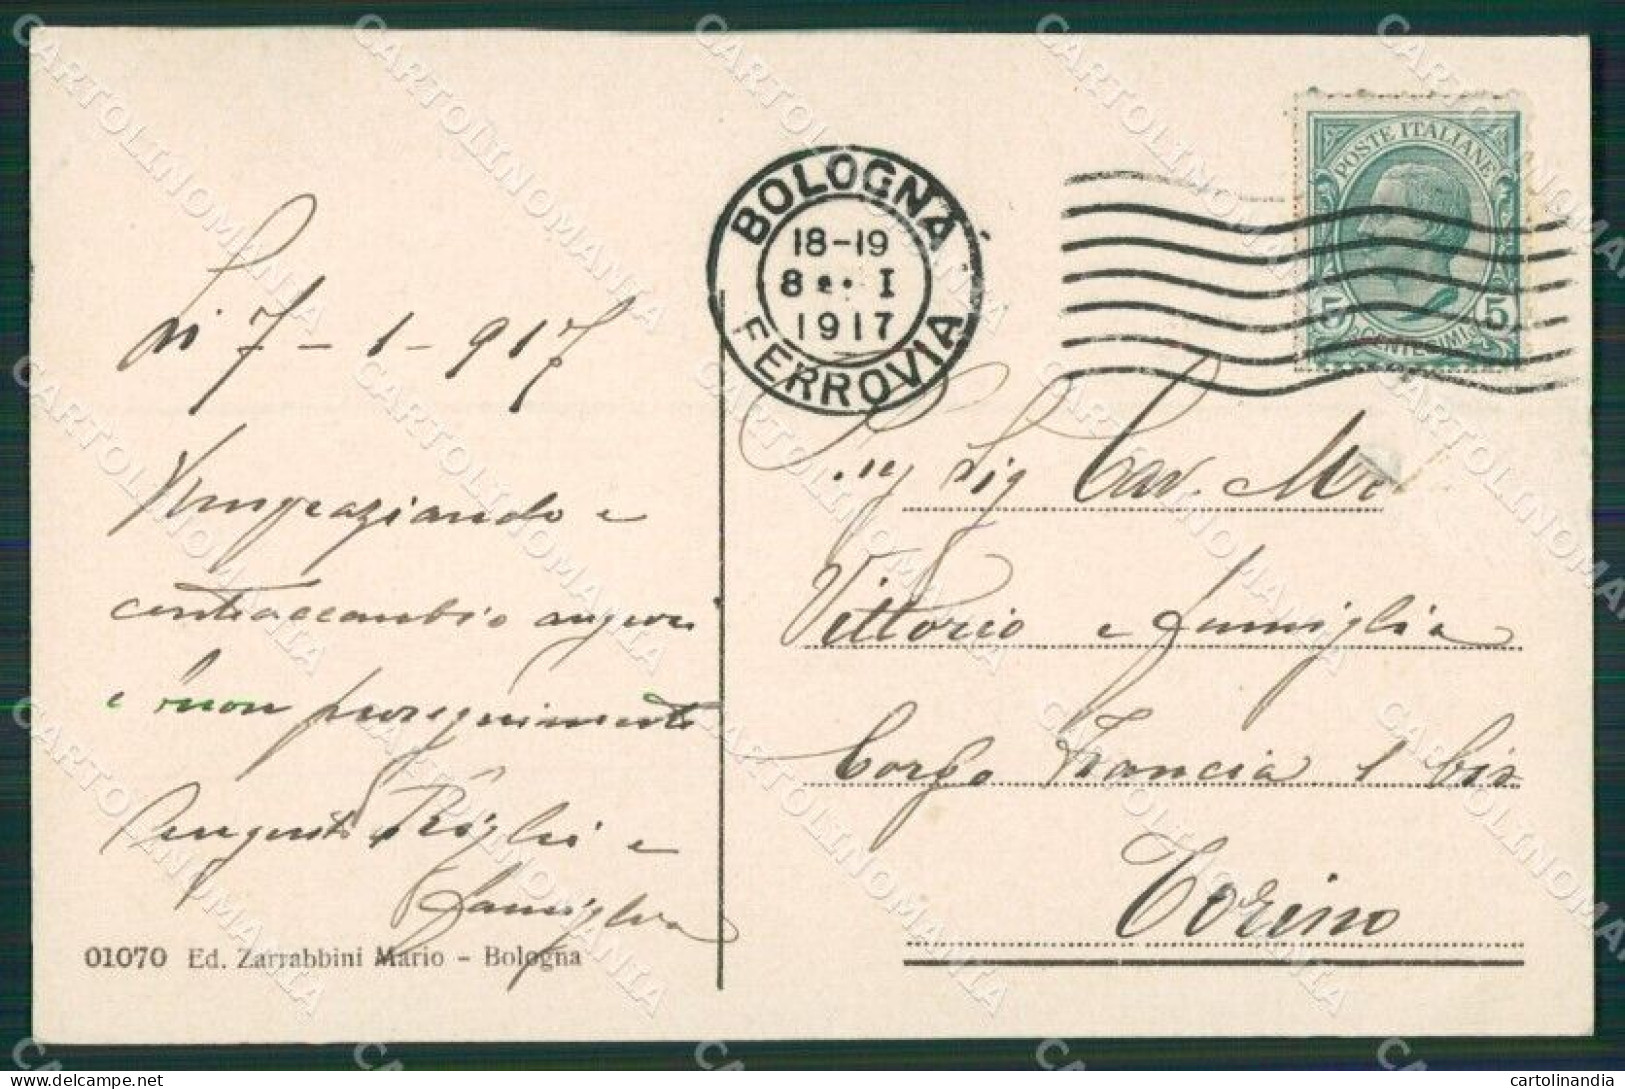 Lì 7-1-917
Ringraziando e
contraccambio auguri
e buon proseguimento
Righi e
famiglia
01070 Ed. Zarrabbini Mario - Bologna
BOLOGNA
18-19
8 I
1917
FERROVIA
POSTE ITALIANE
5 CENTESIMI 5
Sig Cav.
Vittorio e famiglia
Corso Francia 1 bis
Torino
CARTOLINOMANIA
cartolinandia